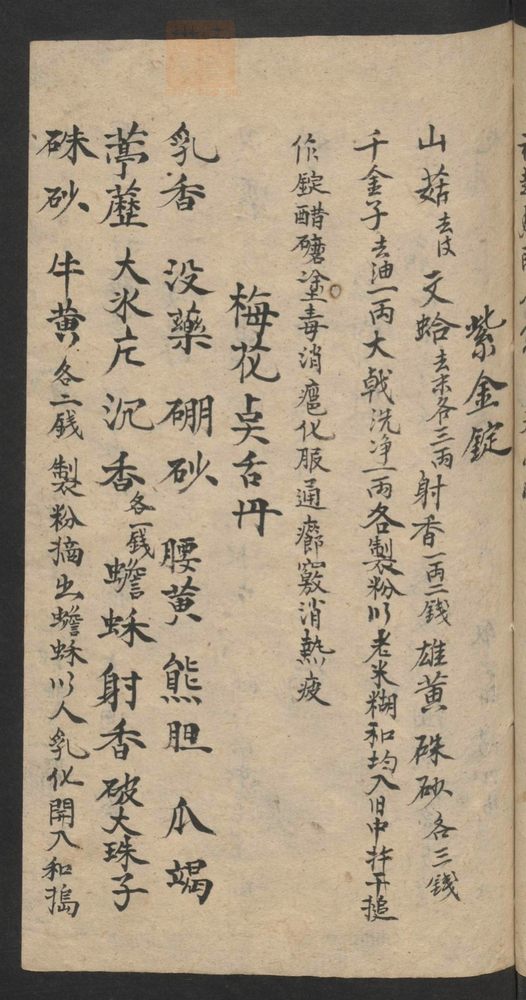 紫金錠
山茹去皮 文蛤去末各三両 射香一両二錢 雄黄 硃砂 各三錢
千金子去油一両 大戟洗净一両 各製粉以老米糊和均入臼中杵千搥
作錠醋磨塗毒消瘡化服通竅消熱疫
梅花点舌丹
乳香 没藥 硼砂 腰黄 熊胆 瓜竭
葶藶 大氷片 沉香各一錢 蟾蛛 射香 破大珠子
硃砂 牛黄 各二錢 製粉摘出蟾蛛以人乳化開入和搗